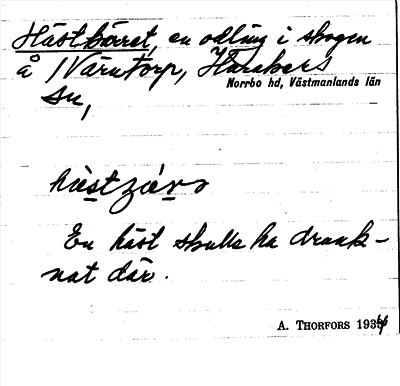 Hästkärret, en odling i skogen
å Närntorp, Harakers
Norrbo hd, Västmanlands län
sn,
En häst skulle ha drunk-
nat där.
A. THORFORS 1934